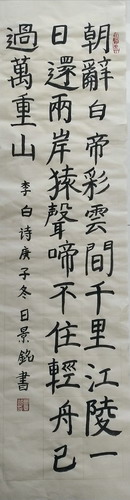 朝辭白帝彩雲間千里江陵一
日還兩岸猿聲啼不住輕舟已
過萬重山
李白诗庚子冬日景銘書